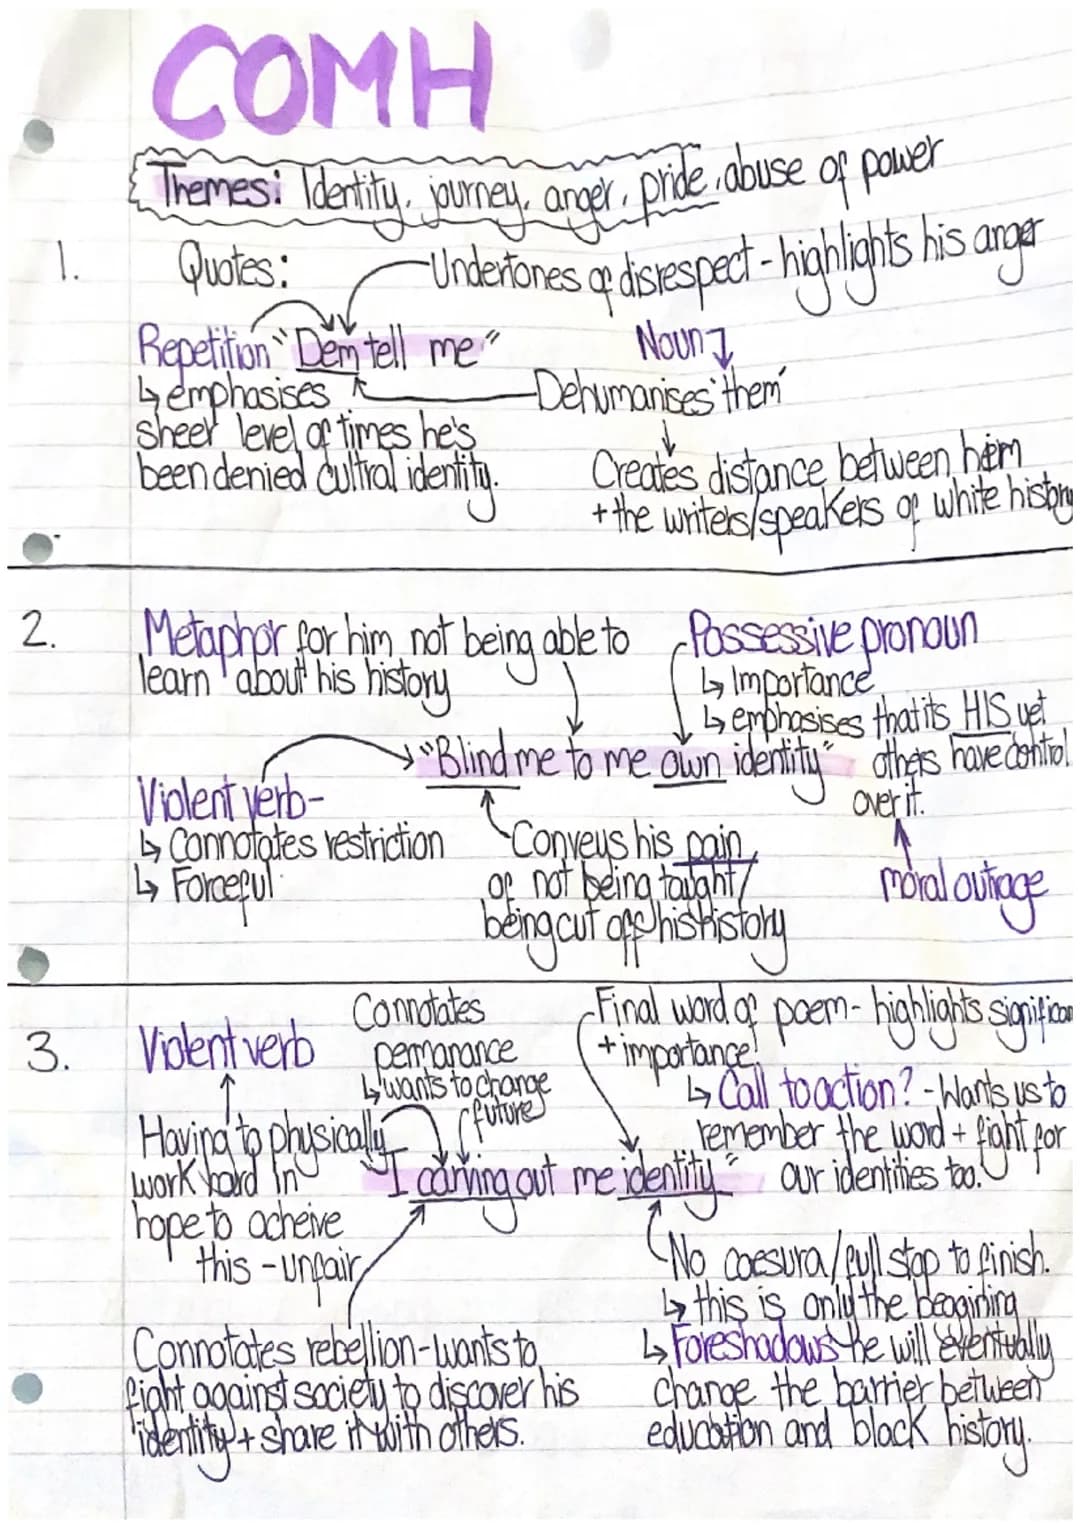 COMH
Themes: Identity, journey, anger, pride, abuse of power
1.
Quotes:
Undertones of disrespect - highlights his anger
Repetition "Dem tell me"
↳ emphasises
sheer level of times he's
been denied cultral identity.
Noun ↴
Dehumanises 'them'
↓
Creates distance between him
+ the writers/speakers of white history
2.
Metaphor for him not being able to
learn about his history
Possessive pronoun
↳ Importance
↳ emphasises that its HIS yet
others have control
over it.
moral outrage
"Blind me to me own identity"
Violent verb-
↳ Connotates restriction
↳ Forceful
Conveys his pain
of not being taught/
being cut off his history
3.
Violent verb
Having to physically
work hard in
hope to acheive
this - unfair
Connotates
permanance
↳ wants to change
future
Final word of poem - highlights
+ importance!
↳ Call to action? - Wants us to
remember the word + fight for
our identities too.
"I carving out me identity"
No caesura/full stop to finish.
↳ this is only the beggining
↳ Foreshadows he will eventually
change the barrier between
education and black history.
Connotates rebellion - wants to
fight against society to discover his
identity + share it with others.